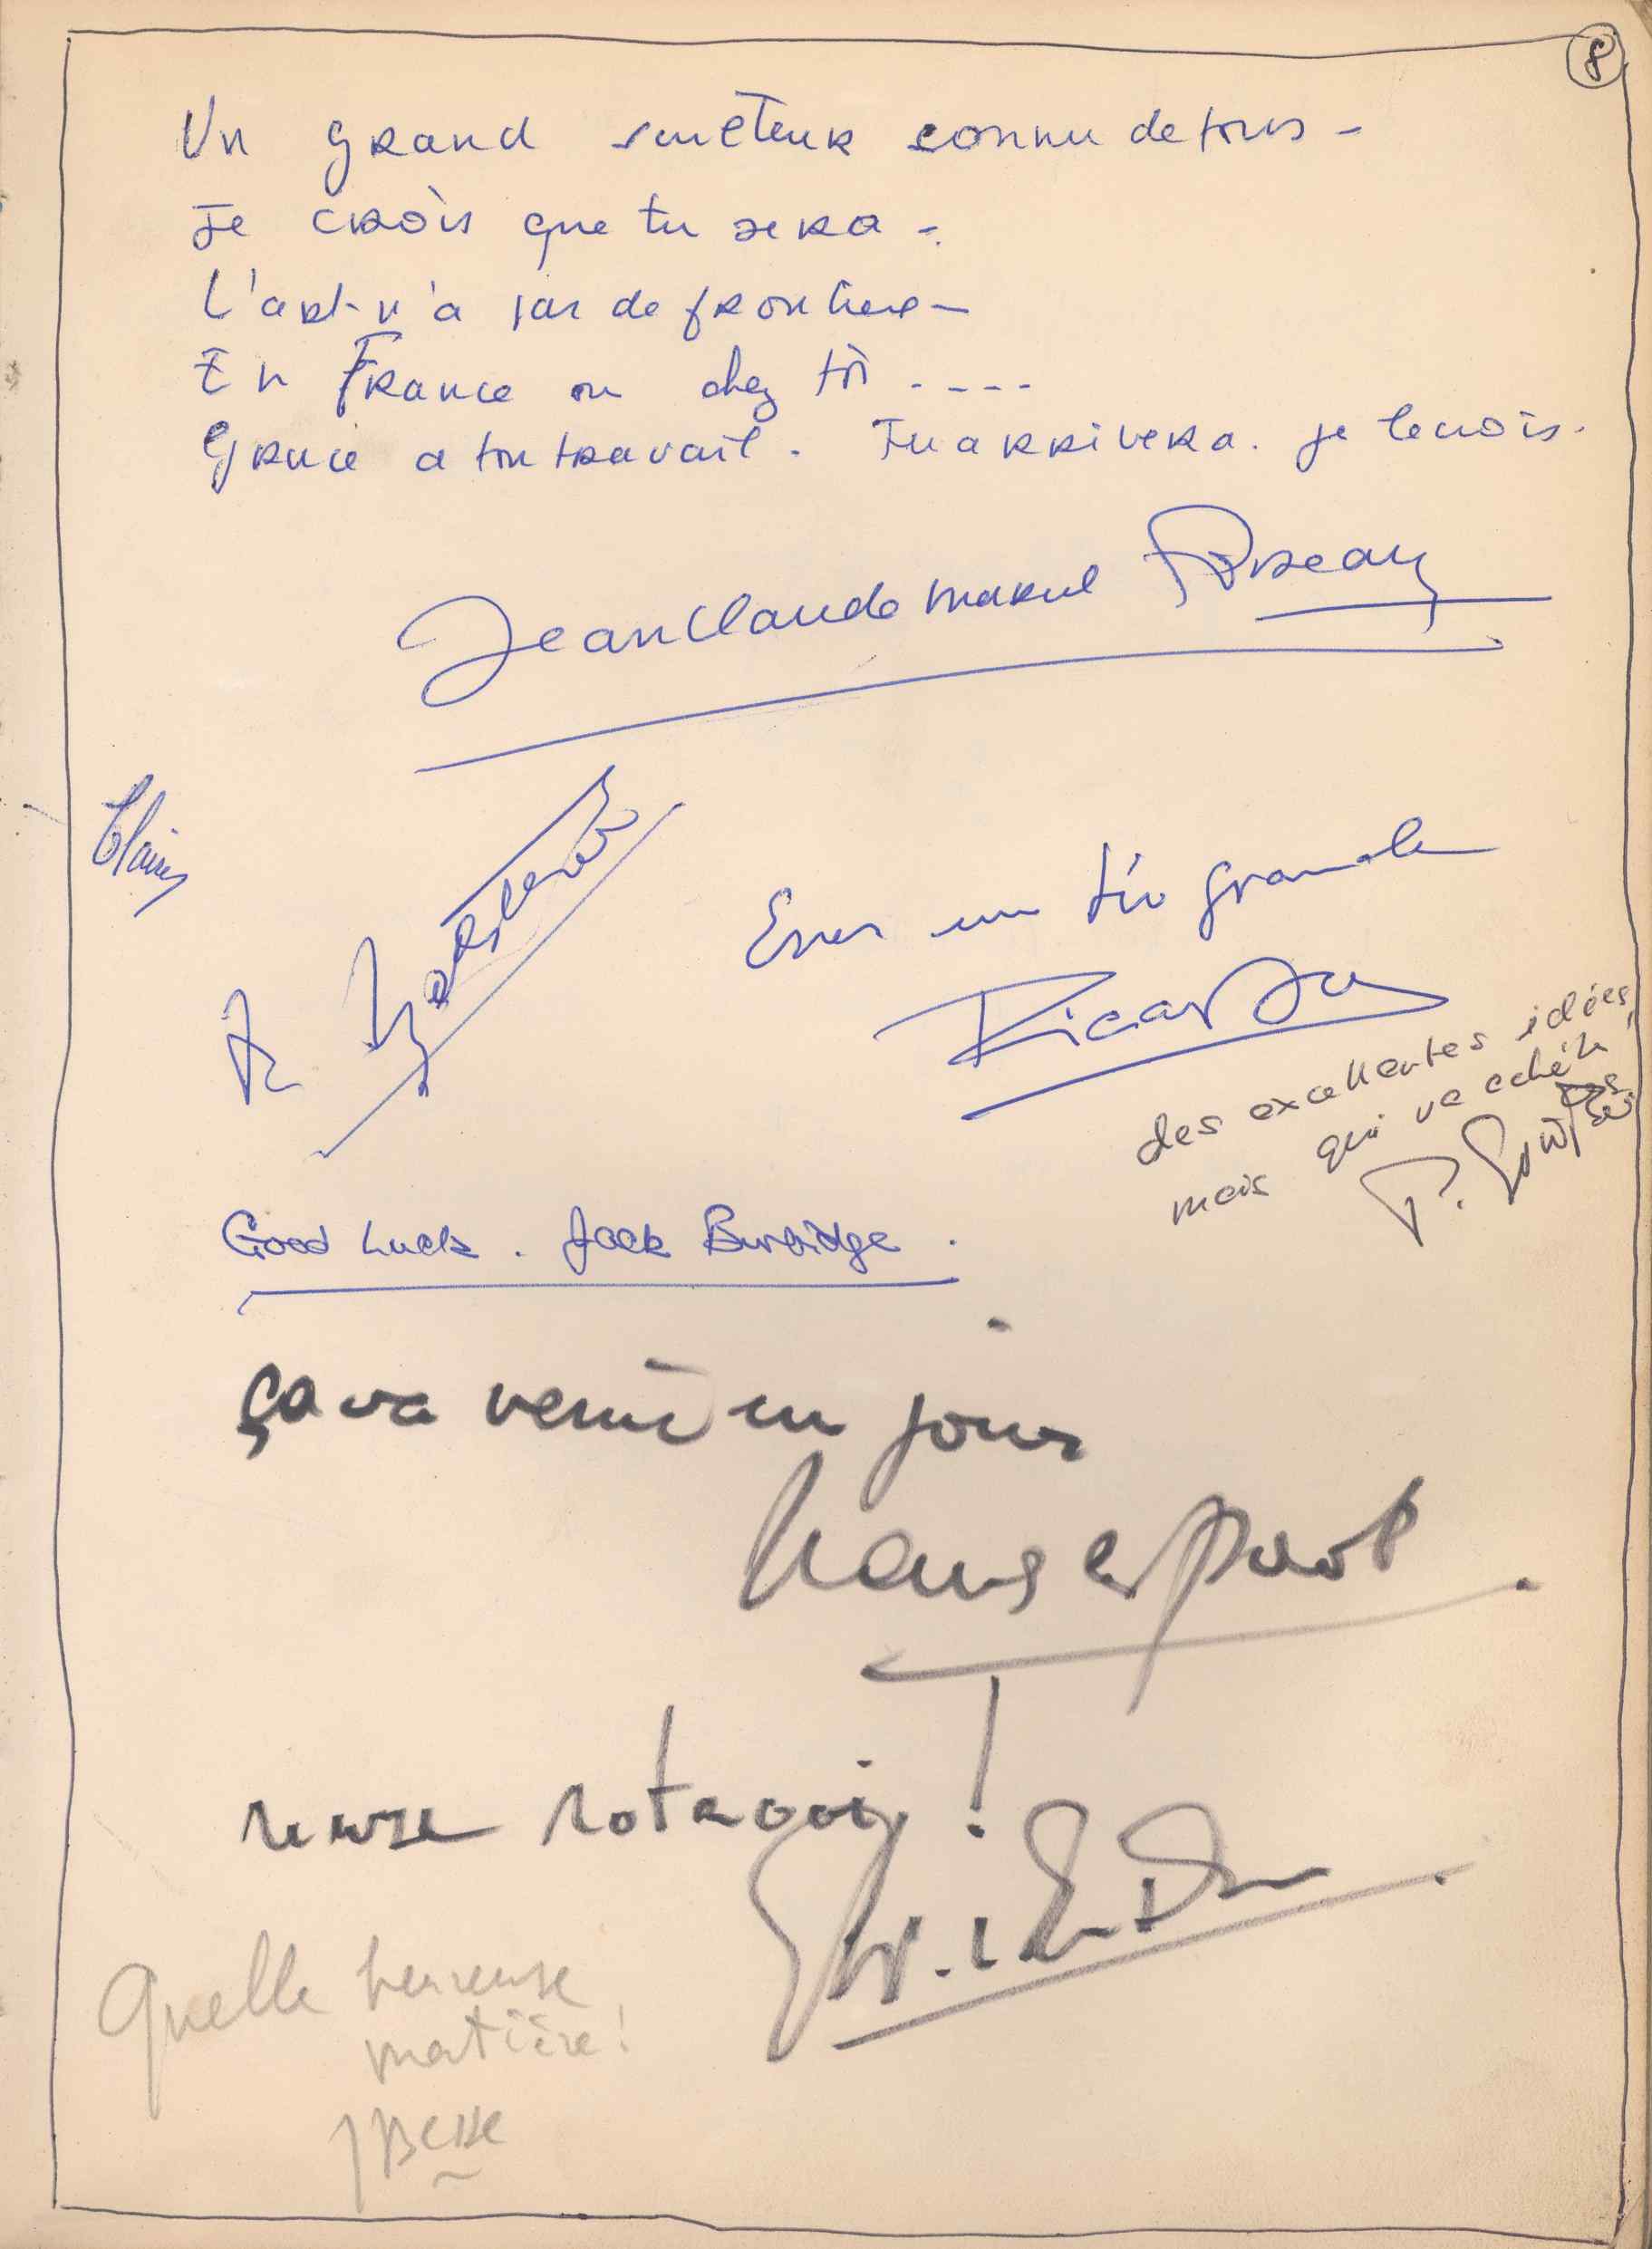 8
Un grand sculteur connu de tous -
Je crois que tu sera -
L'art n'a pas de frontiere -
En France ou chez toi . - - -
Grace a ton travail . Tu arrivera . je le crois .
Jean Claude Marcel
Claire
Eres un tio grande
Ricardo
des excellentes idées,
mais qui va
P.
Good Luck . Jack Burridge .
ça va venir un jour
Quelle heureuse
matière !
J Besse